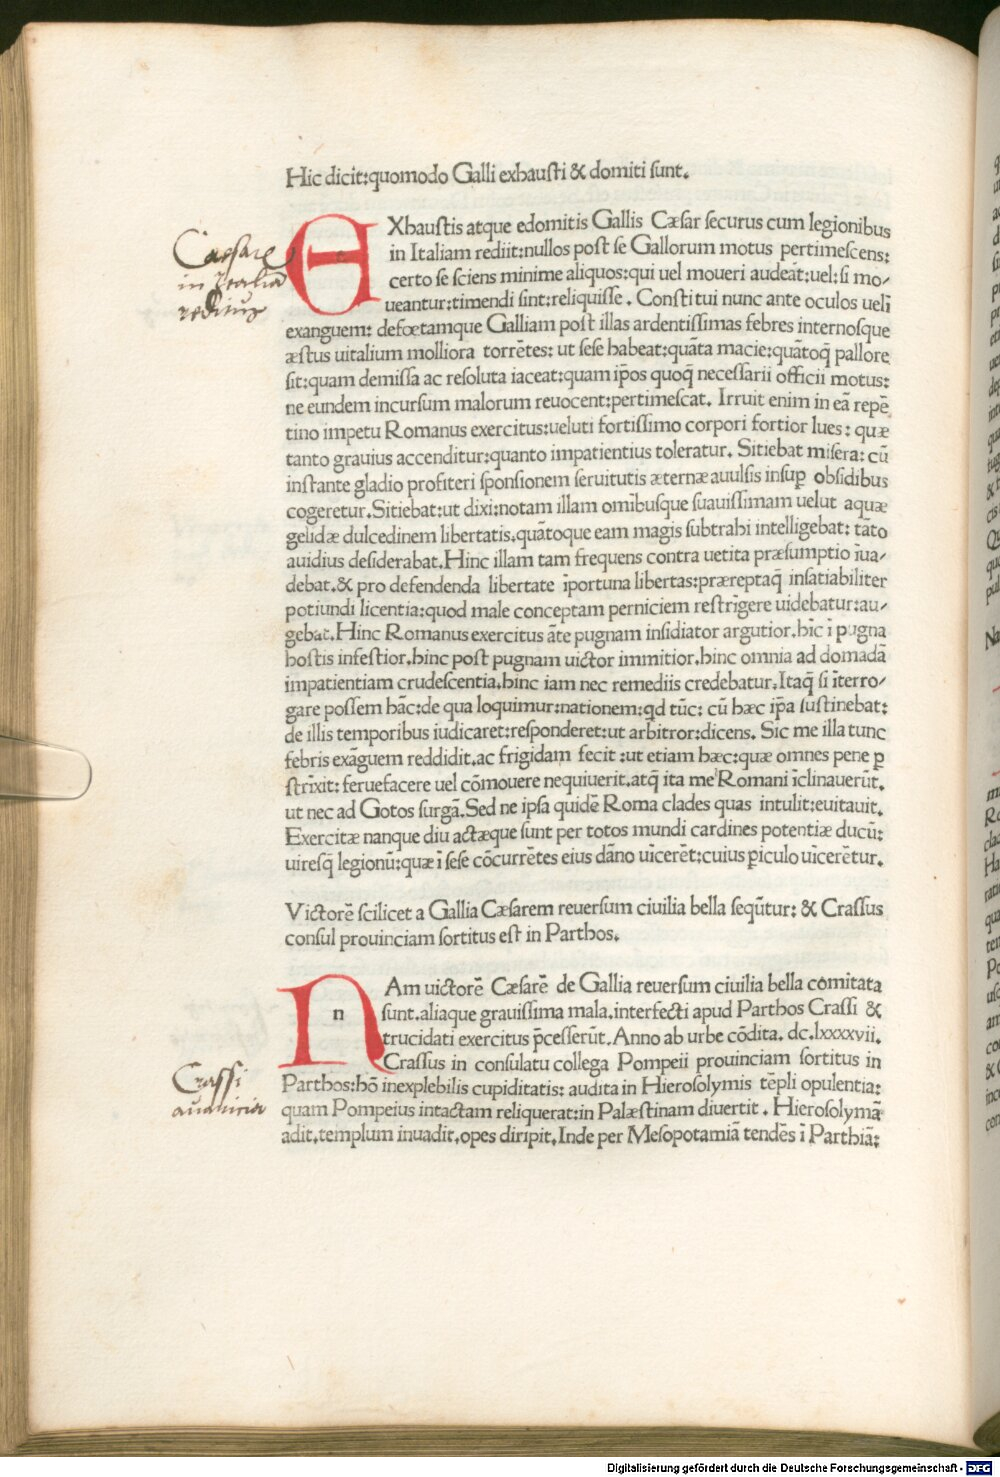 Hic dicit:quomodo Galli exhausti & domiti sunt.
EXhaustis atque edomitis Gallis Cæsar securus cum legionibus
in Italiam rediit:nullos post se Gallorum motus pertimescens:
certo se sciens minime aliquos:qui uel moueri audeāt:uel:si mo-
ueantur:timendi sint:reliquisse. Constitui nunc ante oculos uelī
exanguem: defœtamque Galliam post illas ardentissimas febres internosque
æstus uitalium molliora torrētes: ut sese habeat:quāta macie:quātoq̄ pallore
sit:quam demissa ac resoluta iaceat:quam ip̄os quoq̄ necessarii officii motus:
ne eundem incursum malorum reuocent:pertimescat. Irruit enim in eā repē
tino impetu Romanus exercitus:ueluti fortissimo corpori fortior lues: quæ
tanto grauius accenditur:quanto impatientius toleratur. Sitiebat misera: cū
instante gladio profiteri sponsionem seruitutis æternæ auulsis insuꝑ obsidibus
cogeretur. Sitiebat:ut dixi:notam illam omibusque suauissimam uelut aquæ
gelidæ dulcedinem libertatis.quātoque eam magis subtrahi intelligebat: tāto
auidius desiderabat.Hinc illam tam frequens contra uetita præsumptio īua-
debat.& pro defendenda libertate īportuna libertas:præreptaq̄ insatiabiliter
potiundi licentia:quod male conceptam perniciem restrīgere uidebatur:au-
gebat.Hinc Romanus exercitus āte pugnam insidiator argutior.hīc ī pugna
hostis infestior.hinc post pugnam uictor immitior.hinc omnia ad domādā
impatientiam crudescentia.hinc iam nec remediis credebatur.Itaq̄ si īterro-
gare possem hāc:de qua loquimur:nationem:qd tūc: cū hæc ip̄a sustinebat:
de illis temporibus iudicaret:responderet:ut arbitror:dicens. Sic me illa tunc
febris exāguem reddidit.ac frigidam fecit :ut etiam hæc:quæ omnes pene ꝑ
strīxit: feruefacere uel cōmouere nequiuerit.atq̄ ita me Romani īclinauerūt.
ut nec ad Gotos surgā.Sed ne ipsa quidē Roma clades quas intulit:euitauit.
Exercitæ nanque diu actæque sunt per totos mundi cardines potentiæ ducū:
uiresq̄ legionū:quæ ī sese cōcurrētes eius dāno uīcerēt:cuius ꝑiculo uīcerētur.
Victorē scilicet a Gallia Cæsarem reuersum ciuilia bella seqūtur: & Crassus
consul prouinciam sortitus est in Parthos.
NAm uictorē Cæsarē de Gallia reuersum ciuilia bella comitata
n
sunt.aliaque grauissima mala.interfecti apud Parthos Crassi &
trucidati exercitus p̄cesserūt.Anno ab urbe cōdita. dc.lxxxxvii.
Crassus in consulatu collega Pompeii prouinciam sortitus in
Parthos:hō inexplebilis cupiditatis: audita in Hierosolymis tēpli opulentia:
quam Pompeius intactam reliquerat:in Palæstinam diuertit. Hierosolymā
adit.templum inuadit.opes diripit.Inde per Mesopotamiā tendēs ī Parthiā:
Caesare
in Italia
reditus
Crassi
auaritia
Digitalisierung gefördert durch die Deutsche Forschungsgemeinschaft - DFG